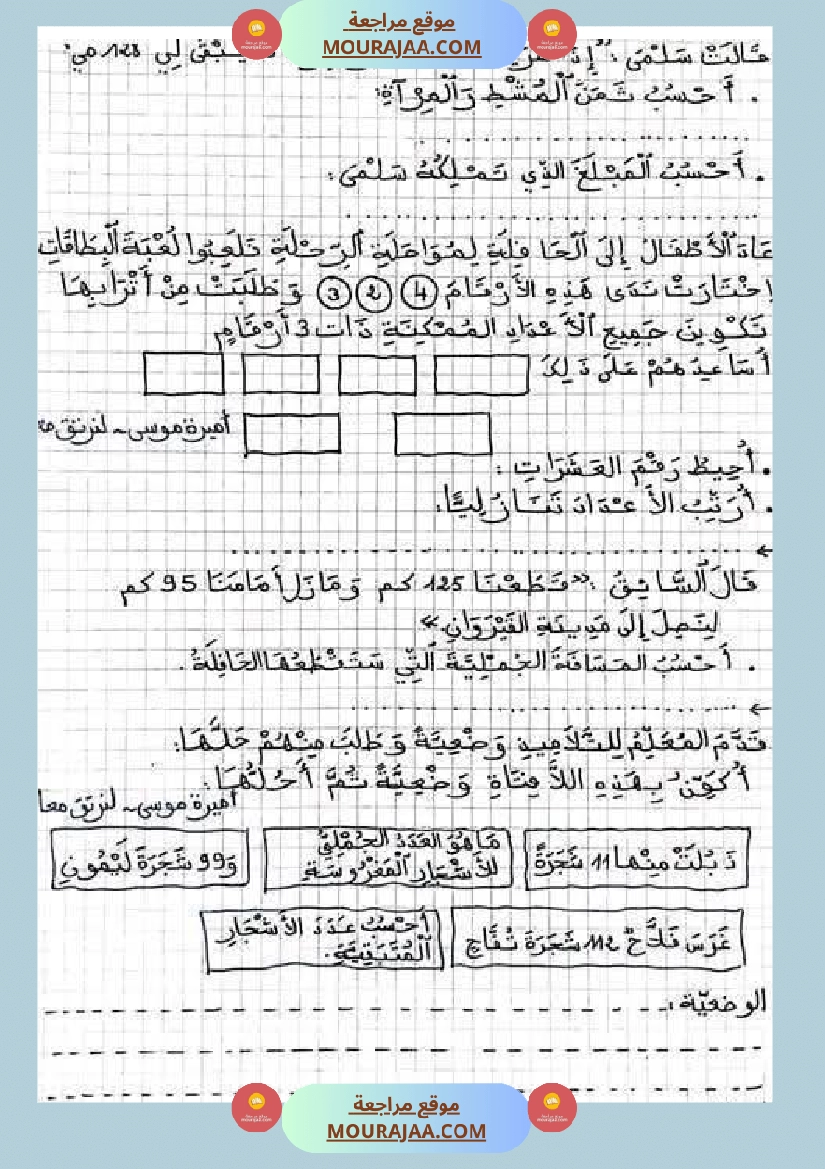 موقع مراجعة
MOURAJAA.COM
قَالَتْ سَلْمَى : يَبْقَى لِي 128 مي
. أَحْسُبُ ثَمَنَ الْمُشْطِ وَالْمِرْآةِ:
. أَحْسُبُ الْمَبْلَغَ الذِّي تَمْلِكُهُ سَلْمَى :
عَادَ الْأَطْفَالُ إِلَى الْحَافِلَةِ لِمُوَاصَلَةِ الرِّحْلَةِ فَلَعِبُوا لُعْبَةَ الْبِطَاقَاتِ
اِخْتَارَتْ نَدَى هَذِهِ الأَرْقَامَ 4 2 3 وَ طَلَبَتْ مِنْ أَتْرَابِهَا
تَكْوِينَ جَمِيعِ الْأَعْدَادِ المُمْكِنَةِ ذَات 3 أَرْقَامٍ
أُسَاعِدُهُمْ عَلَى ذَلِكَ
أميرة موسى - لنرتق معا
. أُحِيطُ رَقْمَ العَشَرَاتِ :
. أُرَتِّبُ الأَعْدَادَ تَنَازُلِيًّا:
قَالَ السَّائِقُ :« قَطَعْنَا 125 كم وَمَازَلَ أَمَامَنَا 95 كم
لِنَصِلَ إِلَى مَدِينَةِ القَيْرَوَانِ »
. أَحْسُبُ المَسَافَةَ الجُمْلِيَّةَ الَّتِي سَتَقْطَعُهَا الحَافِلَةُ .
قَدَّمَ المُعَلِّمُ لِلتَّلَامِيذِ وَضْعِيَّةً وَ طَلَبَ مِنْهُمْ حَلَّهَا:
أُكَوِّنُ بِهَذِهِ اللاَّفِتَاتِ وَضْعِيَّةً ثُمَّ أَحُلُّهَا:
أميرة موسى - لنرتق معا
ذَبُلَتْ مِنْها 11 شَجَرَةً
مَا هُوَ العَدَدُ الجُمْلِيُّ
لِلأَشْجَارِ الْمَغْرُوسَةِ
وَ 99 شَجَرَةَ لَيْمُونٍ
غَرَسَ فَلاَّحٌ 112 شَجَرَةَ تُفَّاحٍ
أَحْسُبُ عَدَدَ الأَشْجَارِ
الْمُتَبَقِّيَةِ.
الوضعيّة :
موقع مراجعة
MOURAJAA.COM